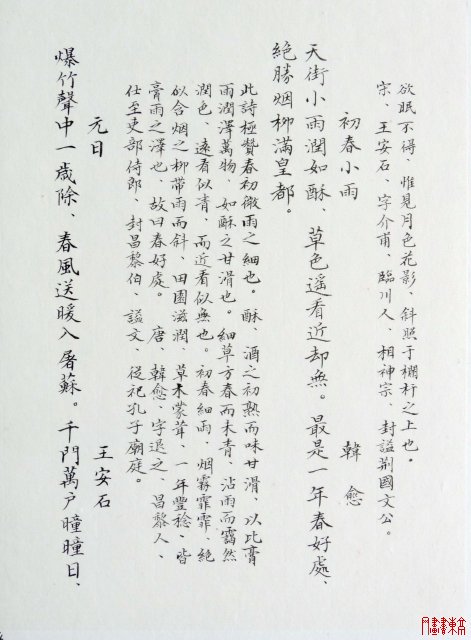 欲眠不得、惟見月色花影、斜照于欄杆之上也。
宗、王安石、字介甫、臨川人、相神宗、封謚荆國文公。
初春小雨　韓愈
天街小雨潤如酥、草色遙看近却無。最是一年春好處、
絶勝烟柳滿皇都。
此詩極贊春初微雨之細也。酥、酒之初熟而味甘滑、以比膏
雨潤澤萬物、如酥之甘滑也。細草方春而未青、沾雨而靄然
潤色、遠看似青、而近看似無也。初春細雨、烟霧霏霏、絶
似含烟之柳帶雨而斜、田園滋潤、草木蒙茸、一年豐稔、皆
膏雨之澤也、故曰春好處。唐、韓愈、字退之、昌黎人、
仕至吏部侍郎、封昌黎伯、謚文、從祀孔子廟庭。
元日　王安石
爆竹聲中一歲除、春風送暖入屠蘇。千門萬户曈曈日、